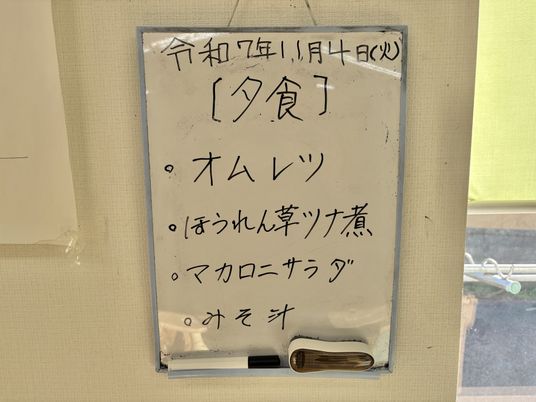 令和7年11月4日(火)
[夕食]
。オムレツ
。ほうれん草ツナ煮
。マカロニサラダ
。みそ汁